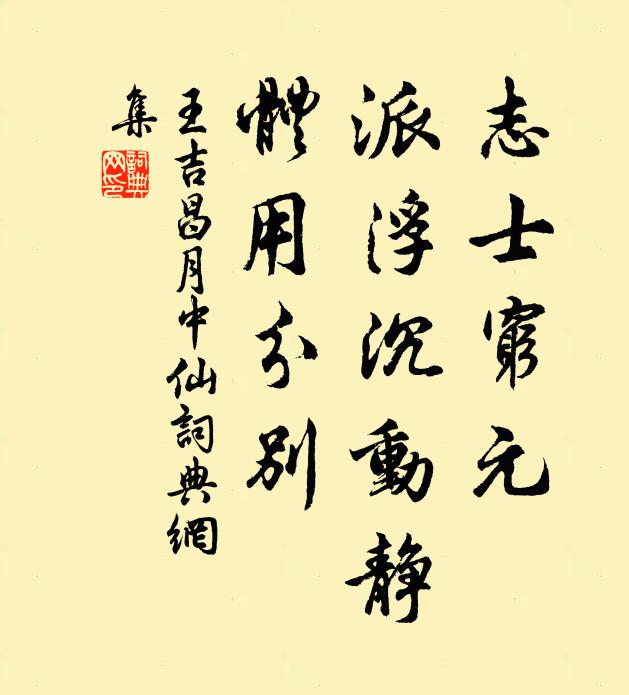 志士窮元
派浮沉動静
體用分別
王吉昌月中仙詞典網
集
詞典
网印